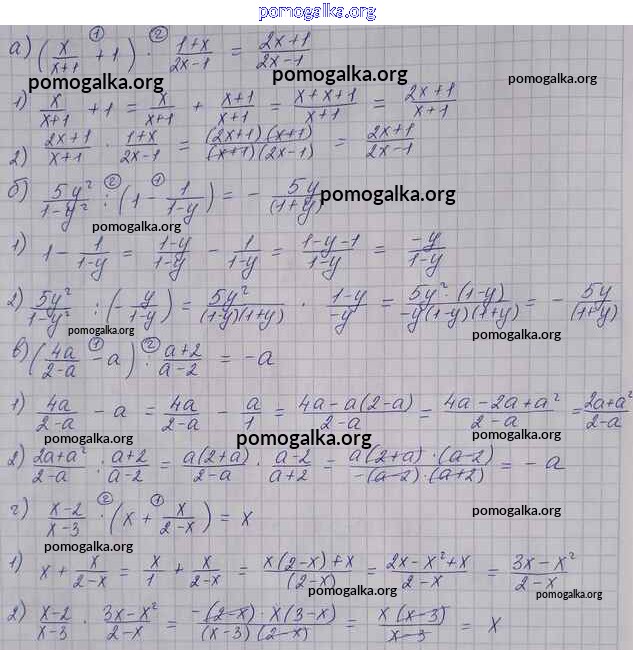 pomogalka.org
а) (x/(x+1) + 1) ① · ② (1+x)/(2x-1) = (2x+1)/(2x-1)
pomogalka.org pomogalka.org pomogalka.org
1) x/(x+1) + 1 = x/(x+1) + (x+1)/(x+1) = (x+x+1)/(x+1) = (2x+1)/(x+1)
2) (2x+1)/(x+1) · (1+x)/(2x-1) = (2x+1)(x+1)/((x+1)(2x-1)) = (2x+1)/(2x-1)
б) 5y²/(1-y²) ② : (1 - ① 1/(1-y)) = - 5y/(1+y)
pomogalka.org
pomogalka.org
1) 1 - 1/(1-y) = (1-y)/(1-y) - 1/(1-y) = (1-y-1)/(1-y) = -y/(1-y)
2) 5y²/(1-y²) : (- y/(1-y)) = 5y²/((1-y)(1+y)) · (1-y)/(-y) = 5y² · (1-y)/(-y(1-y)(1+y)) = - 5y/(1+y)
pomogalka.org pomogalka.org
в) (4a/(2-a) ① - a) ② : (a+2)/(a-2) = -a
1) 4a/(2-a) - a = 4a/(2-a) - a/1 = (4a-a(2-a))/(2-a) = (4a-2a+a²)/(2-a) = (2a+a²)/(2-a)
pomogalka.org pomogalka.org pomogalka.org
2) (2a+a²)/(2-a) : (a+2)/(a-2) = a(2+a)/(2-a) · (a-2)/(a+2) = a(2+a)·(a-2)/(-(a-2)·(a+2)) = -a
г) (x-2)/(x-3) ② · (x + ① x/(2-x)) = x
pomogalka.org pomogalka.org
1) x + x/(2-x) = x/1 + x/(2-x) = (x(2-x)+x)/(2-x) = (2x-x²+x)/(2-x) = (3x-x²)/(2-x)
pomogalka.org pomogalka.org
2) (x-2)/(x-3) · (3x-x²)/(2-x) = -(2-x)·x(3-x)/((x-3)(2-x)) = x(x-3)/(x-3) = x
pomogalka.org